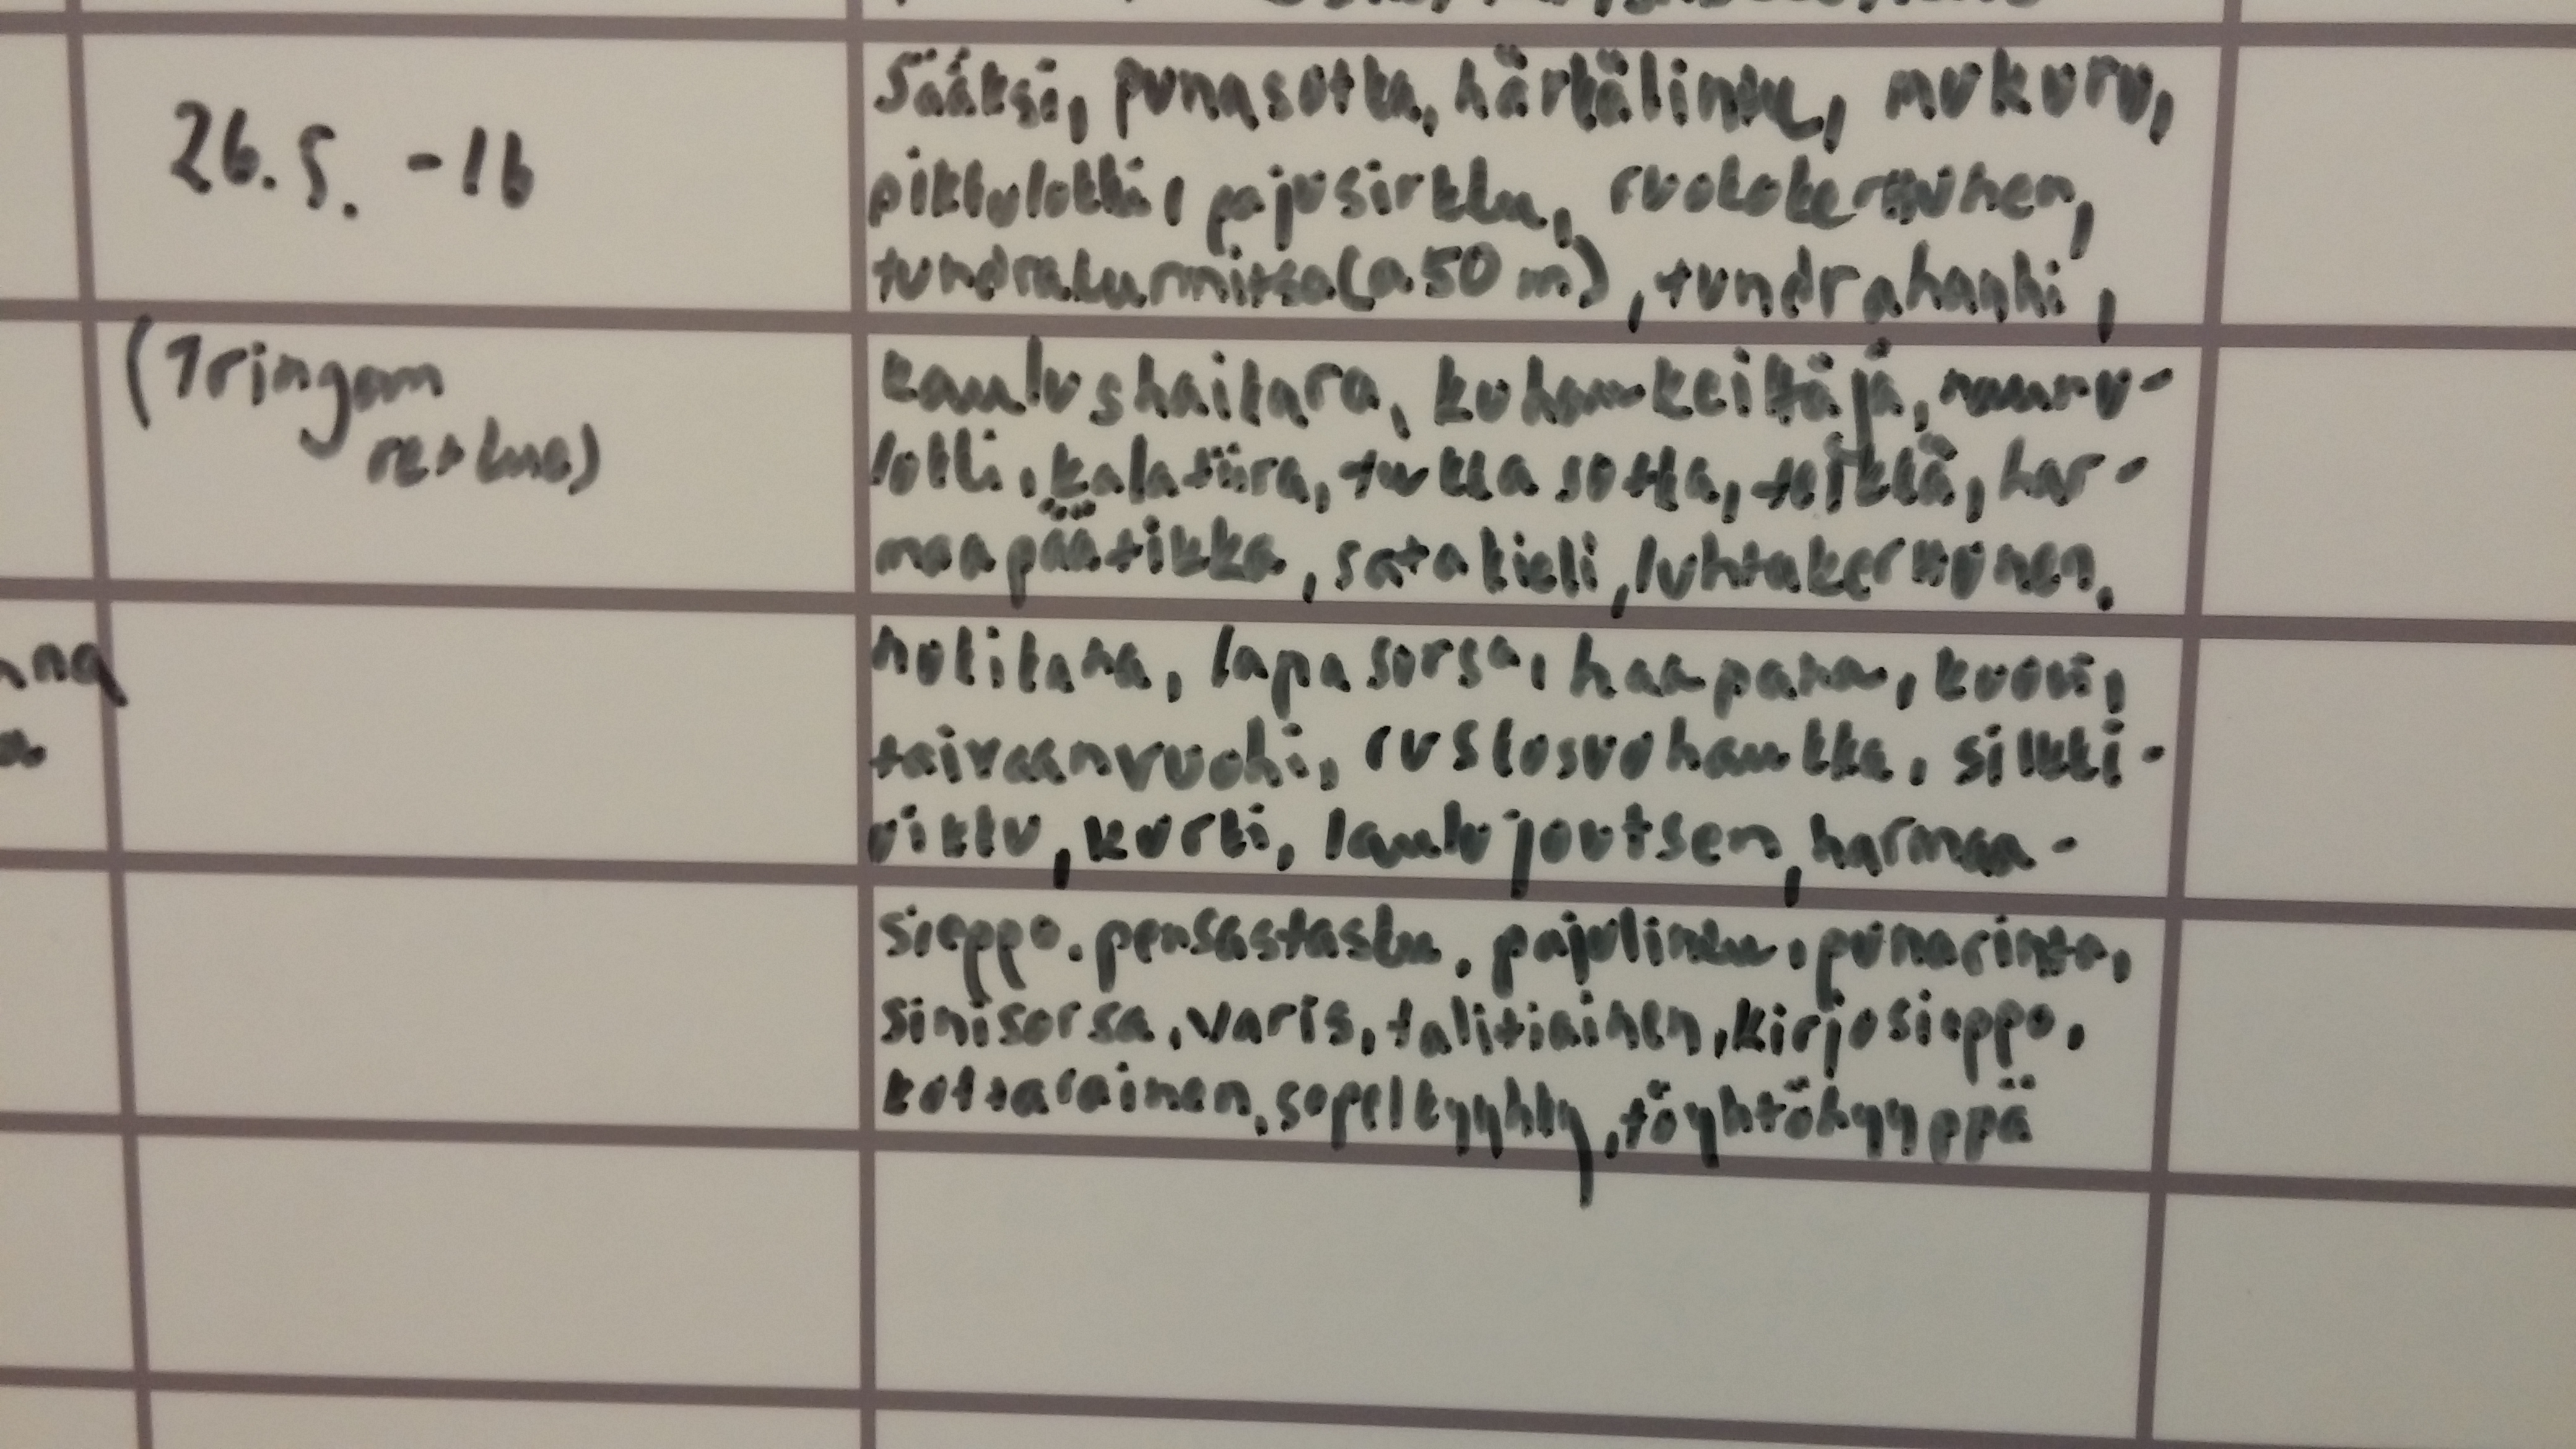 26.5. -16
(Tringam
retkue)
Sääksi, punasotka, härkälintu, nokuru,
pikkulokki, pajusirkku, ruokokerttunen,
tundrakurmitsa(a 50 m), tundrahanhi,
kaulushaikara, kuhankeittäjä, nauru-
lokki, kalatiira, tukkasotka, telkkä, har-
maapäätikka, satakieli, luhtakerttunen,
nokikana, lapasorsa, haapana, kuovi,
taivaanvuohi, ruskosuohaukka, silkki-
uikku, kurki, laulujoutsen, harmaa-
sieppo, pensastasku, pajulintu, punarinta,
sinisorsa, varis, talitiainen, kirjosieppo,
kottarainen, sepelkyyhky, töyhtöhyyppä